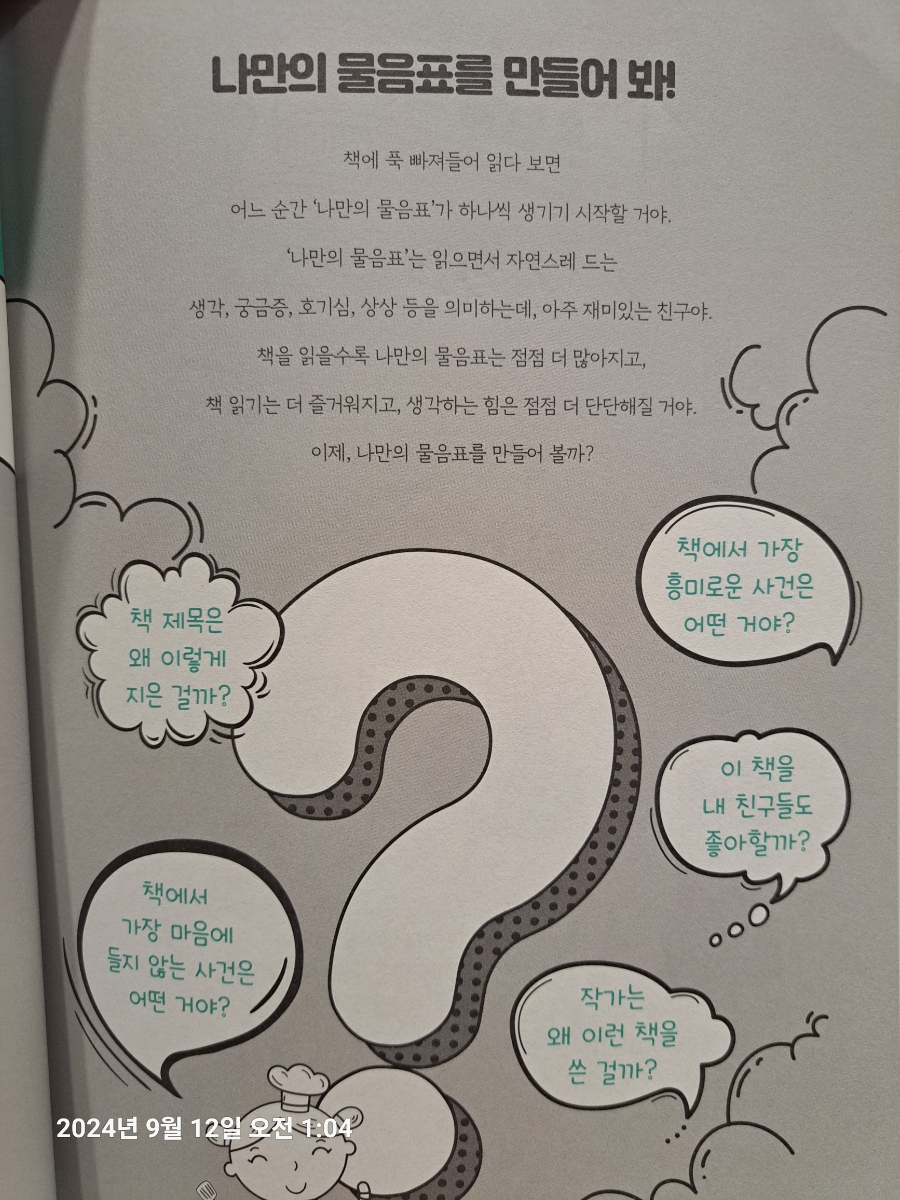 나만의 물음표를 만들어 봐!
책에 푹 빠져들어 읽다 보면
어느 순간 ‘나만의 물음표’가 하나씩 생기기 시작할 거야.
‘나만의 물음표’는 읽으면서 자연스레 드는
생각, 궁금증, 호기심, 상상 등을 의미하는데, 아주 재미있는 친구야.
책을 읽을수록 나만의 물음표는 점점 더 많아지고,
책 읽기는 더 즐거워지고, 생각하는 힘은 점점 더 단단해질 거야.
이제, 나만의 물음표를 만들어 볼까?
책에서 가장
흥미로운 사건은
어떤 거야?
책 제목은
왜 이렇게
지은 걸까?
이 책을
내 친구들도
좋아할까?
책에서
가장 마음에
들지 않는 사건은
어떤 거야?
작가는
왜 이런 책을
쓴 걸까?
2024년 9월 12일 오전 1:04